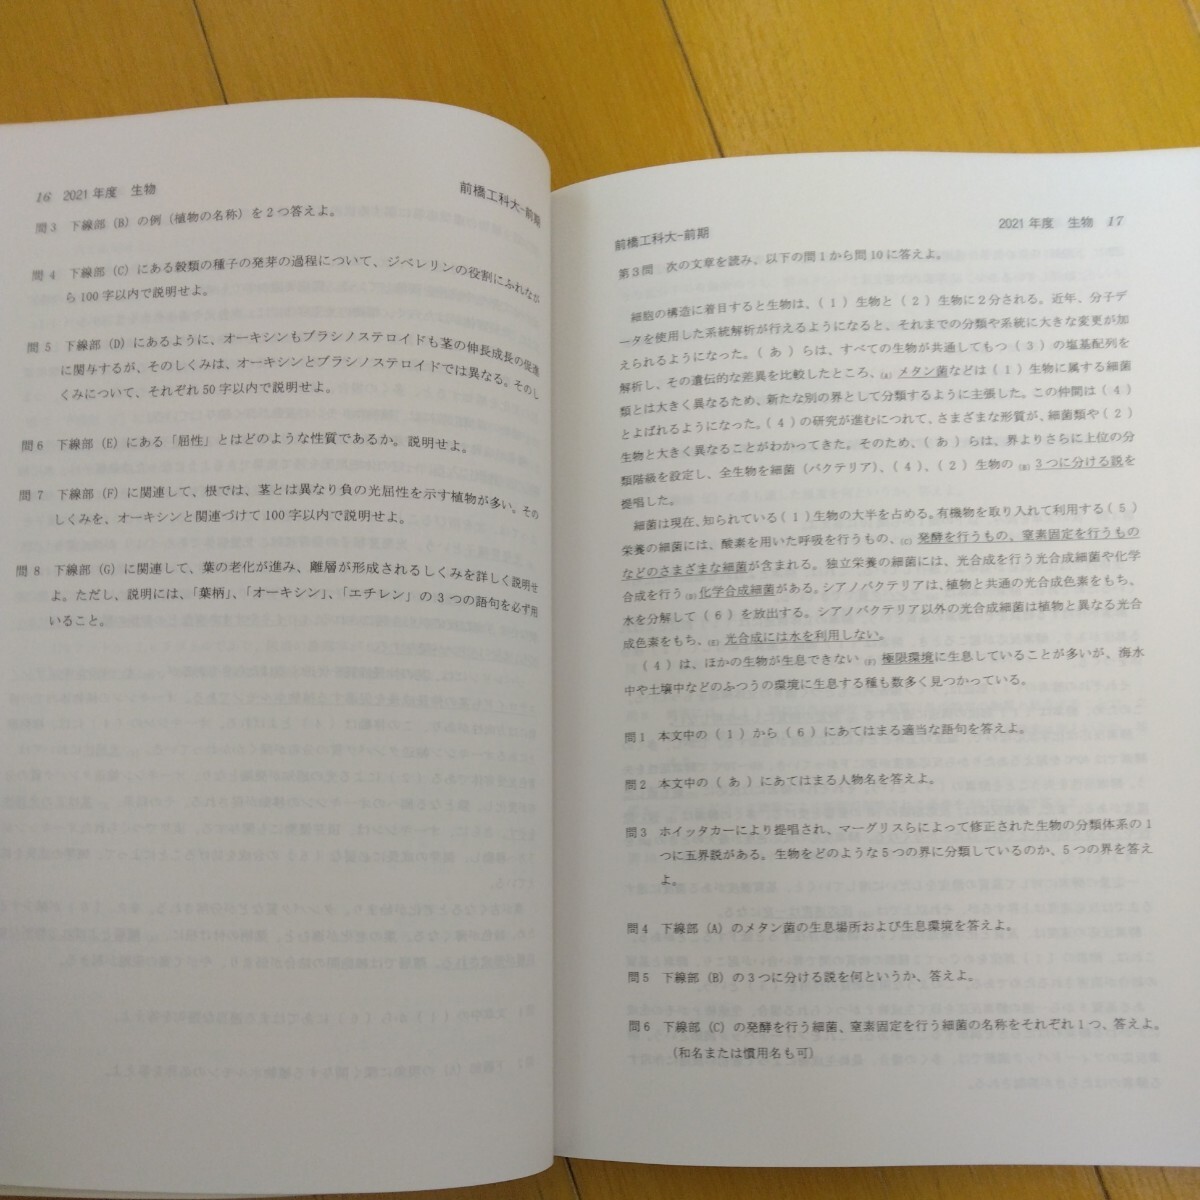 16 2021年度 生物
前橋工科大-前期
問3 下線部(B)の例(植物の名称)を2つ答えよ。
問4 下線部(C)にある穀類の種子の発芽の過程について、ジベレリンの役割にふれなが
ら100字以内で説明せよ。
問5 下線部(D)にあるように、オーキシンもブラシノステロイドも茎の伸長成長の促進
に関与するが、そのしくみは、オーキシンとブラシノステロイドでは異なる。そのし
くみについて、それぞれ50字以内で説明せよ。
問6 下線部(E)にある「屈性」とはどのような性質であるか。説明せよ。
問7 下線部(F)に関連して、根では、茎とは異なり負の光屈性を示す植物が多い。その
しくみを、オーキシンと関連づけて100字以内で説明せよ。
問8 下線部(G)に関連して、葉の老化が進み、離層が形成されるしくみを詳しく説明せ
よ。ただし、説明には、「葉柄」、「オーキシン」、「エチレン」の3つの語句を必ず用
いること。
前橋工科大-前期
2021年度 生物 17
第3問 次の文章を読み、以下の問1から問10に答えよ。
細胞の構造に着目すると生物は、(1)生物と(2)生物に2分される。近年、分子デ
ータを使用した系統解析が行えるようになると、それまでの分類や系統に大きな変更が加
えられるようになった。(あ)らは、すべての生物が共通してもつ(3)の塩基配列を
解析し、その遺伝的な差異を比較したところ、(A)メタン菌などは(1)生物に属する細菌
類とは大きく異なるため、新たな別の界として分類するように主張した。この仲間は(4)
とよばれるようになった。(4)の研究が進むにつれて、さまざまな形質が、細菌類や(2)
生物と大きく異なることがわかってきた。そのため、(あ)らは、界よりさらに上位の分
類階級を設定し、全生物を細菌(バクテリア)、(4)、(2)生物の(B)3つに分ける説を
提唱した。
細菌は現在、知られている(1)生物の大半を占める。有機物を取り入れて利用する(5)
栄養の細菌には、酸素を用いた呼吸を行うもの、(C)発酵を行うもの、窒素固定を行うもの
などのさまざまな細菌が含まれる。独立栄養の細菌には、光合成を行う光合成細菌や化学
合成を行う(D)化学合成細菌がある。シアノバクテリアは、植物と共通の光合成色素をもち、
水を分解して(6)を放出する。シアノバクテリア以外の光合成細菌は植物と異なる光合
成色素をもち、(E)光合成には水を利用しない。
(4)は、ほかの生物が生息できない(F)極限環境に生息していることが多いが、海水
中や土壌中などのふつうの環境に生息する種も数多く見つかっている。
問1 本文中の(1)から(6)にあてはまる適当な語句を答えよ。
問2 本文中の(あ)にあてはまる人物名を答えよ。
問3 ホイッタカーにより提唱され、マーグリスらによって修正された生物の分類体系の1
つに五界説がある。生物をどのような5つの界に分類しているのか、5つの界を答え
よ。
問4 下線部(A)のメタン菌の生息場所および生息環境を答えよ。
問5 下線部(B)の3つに分ける説を何というか、答えよ。
問6 下線部(C)の発酵を行う細菌、窒素固定を行う細菌の名称をそれぞれ1つ、答えよ。
(和名または慣用名も可)